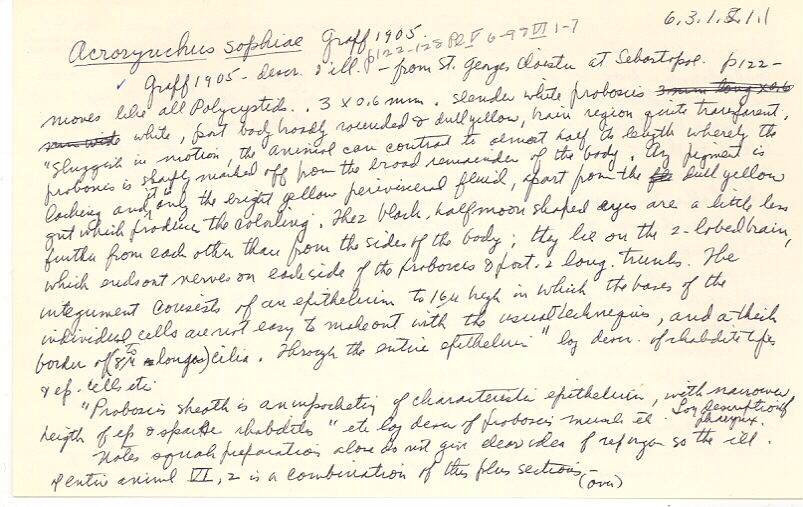 6.3.1.5.1.1
Acrorynchus sophiae Graff 1905
p122-128 Pl V 6-98 VI 1-7
✓ Graff 1905 - descr. & ill. - from St. Georges Cloister at Sebastopol. p122-
moves like all Polycystids. . 3 x 0.6 mm. slender white proboscis 3 mm long x 0.6
mm wide white, post body broadly rounded & dull yellow, brain region quite transparent.
"Sluggish in motion, the animal can contract to almost half its length whereby the
proboscis is sharply marked off from the broad remainder of the body. Any pigment is
lacking and it is only the bright yellow perivisceral fluid, apart from the dull yellow
gut which produce the coloring. The 2 black, halfmoon shaped eyes are a little less
further from each other than from the sides of the body; they lie on the 2-lobed brain,
which sends out nerves on each side of the proboscis & post. 2 long. trunks. The
integument consists of an epithelium to 16µ high in which the bases of the
individual cells are not easy to make out with the usual techniques, and a thick
border of (to 8µ long) cilia. Through the entire epithelium" log descr. of rhabdite types
& ep. cells etc
"Proboscis sheath is an inpocketing of characteristic epithelium, with narrower
heigth of ep & sparse rhabdites" etc log descr of proboscis muscle etc. Log description of
pharynx.
Notes squash preparations alone do not give clear idea of rep organ so the ill.
of entire animal VI, 2 is a combination of this plus sections -
(over)